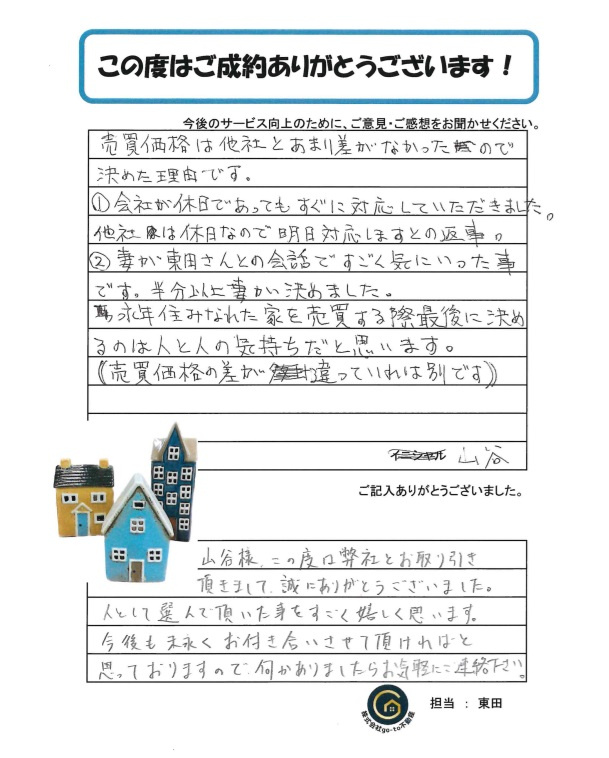 この度はご成約ありがとうございます！
今後のサービス向上のために、ご意見・ご感想をお聞かせください。
売買価格は他社とあまり差がなかったので
決めた理由です。
①会社が休日であってもすぐに対応していただきました。
他社は休日なので明日対応しますとの返事。
②妻が東田さんとの会話ですごく気にいった事
です。半分以上妻が決めました。
永年住みなれた家を売買する際最後に決め
るのは人と人の気持ちだと思います。
(（売買価格の差が違っていれば別です）)
イニシャル 山谷
ご記入ありがとうございました。
山谷様、この度は弊社とお取り引き
頂きまして、誠にありがとうございました。
人として選んで頂いた事をすごく嬉しく思います。
今後も末永くお付き合いさせて頂ければと
思っておりますので、何かありましたらお気軽にご連絡下さい。
株式会社go-to不動産
担当 ： 東田